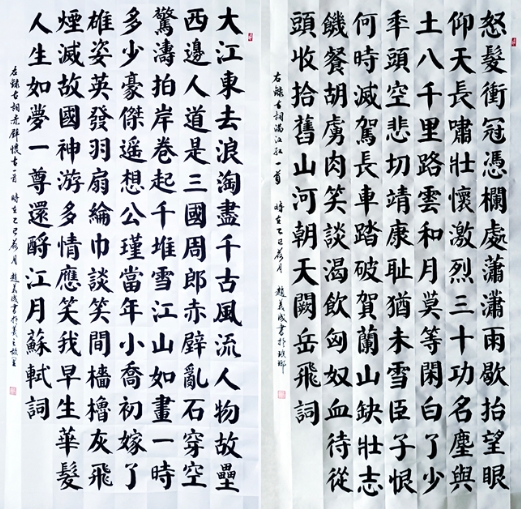 怒髮衝冠憑欄處瀟瀟雨歇抬望眼
仰天長嘯壯懷激烈三十功名塵與
土八千里路雲和月莫等閑白了少
秊頭空悲切靖康耻猶未雪臣子恨
何時減駕長車踏破賀蘭山缺壯志
饑餐胡虜肉笑談渴飲匈奴血待從
頭收拾舊山河朝天闕岳飛詞
右錄古詞滿江紅一首 時在乙巳荷月 趙義成書於琅琊
大江東去浪淘盡千古風流人物故壘
西邊人道是三國周郎赤壁亂石穿空
驚濤拍岸卷起千堆雪江山如畫一時
多少豪傑遥想公瑾當年小喬初嫁了
雄姿英發羽扇綸巾談笑間檣櫓灰飛
煙滅故國神游多情應笑我早生華髮
人生如夢一尊還酹江月蘇軾詞
右錄古詞赤壁懷古一首 時在乙巳荷月 趙義成書